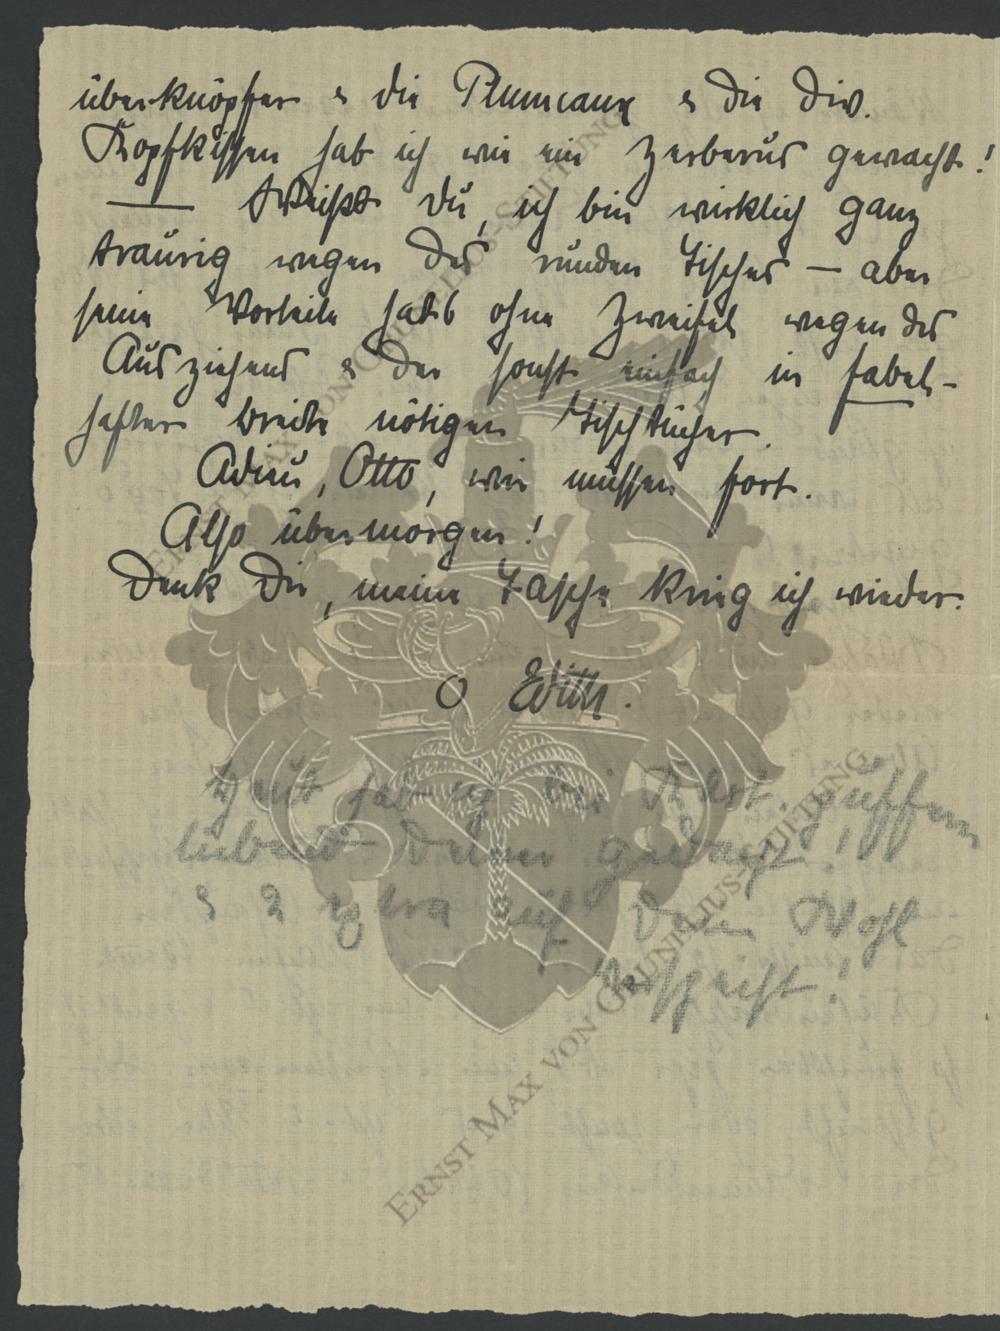 überknöpfer & die Plumeaux & die div.
Kopfkissen hab ich wie ein Zerberus gewacht!
— Weißt Du, ich bin wirklich ganz
traurig wegen des runden Tisches — aber
seine Vorteile hats ohne Zweifel wegen des
Ausziehens & der sonst einfach in fabel-
hafter Breite nötigen Tischtücher.
Adieu, Otto, wir müssen fort.
Also übermorgen!
Denk Dir, meine Tasche krieg ich wieder.
O Edith.
Heut hab ich bei
liebend Deiner gedacht!
& 2 extra auf Dein Wohl
ERNST MAX VON GRUNELIUS-STIFTUNG
ERNST MAX VON GRUNELIUS-STIFTUNG